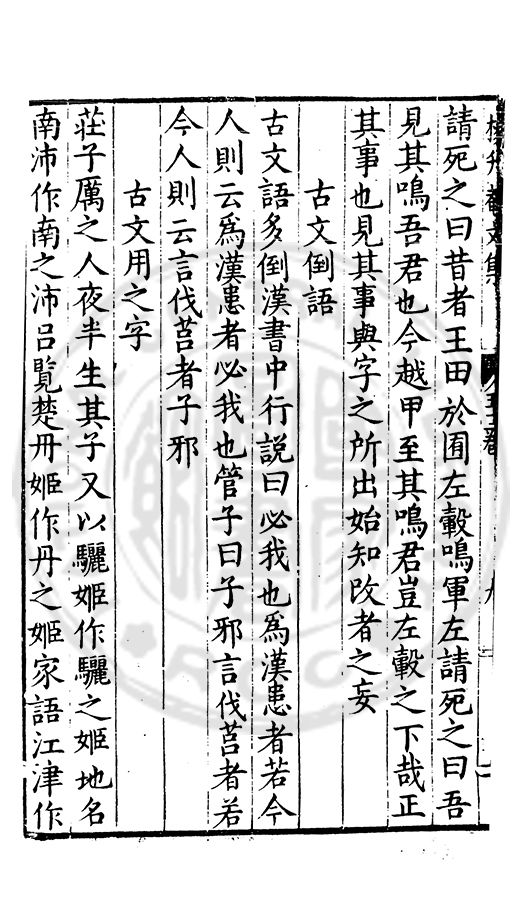 請死之曰昔者王田於囿左轂鳴軍左請死之曰吾
見其鳴吾君也今越甲至其鳴君豈左轂之下哉正
其事也見其事與字之所出始知改者之妄
古文倒語
古文語多倒漢書中行説曰必我也爲漢患者若今
人則云爲漢患者必我也管子曰子邪言伐莒者若
今人則云言伐莒者子邪
古文用之字
莊子厲之人夜半生其子又以驪姬作驪之姬地名
南沛作南之沛吕覧楚丹姬作丹之姬家語江津作